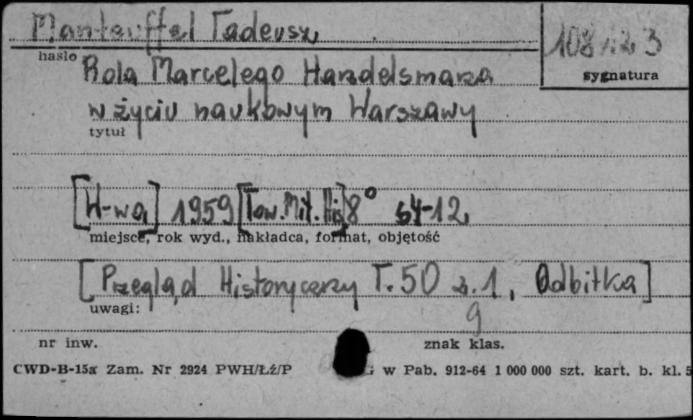 Manteuffel Tadeusz
hasło
sygnatura
Rola Marcelego Handelsmana
w życiu naukowym Warszawy
tytuł
[W-wa] 1959 [Tow. Mił. His] 8° 64-12,
miejsce, rok wyd., nakładca, format, objętość
[Przegląd Historyczny T. 50 z. 1, Odbitka]
uwagi: g
nr inw. znak klas.
CWD-B-15a Zam. Nr 2924 PWH/Łż/P w Pab. 912-64 1 000 000 szt. kart. b. kl. 5